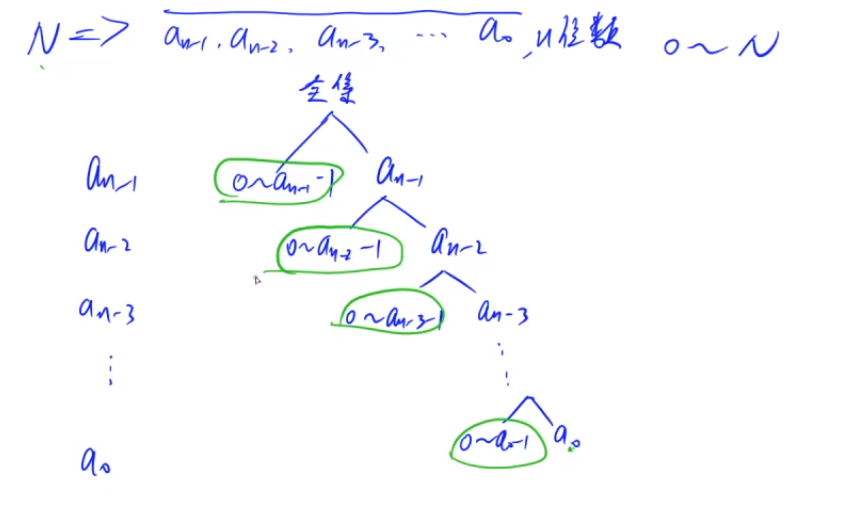 N => aₙ₋₁, aₙ₋₂, aₙ₋₃, ⋯ a₀, n位数 0~N
全集
aₙ₋₁ 0~aₙ₋₁-1 aₙ₋₁
aₙ₋₂ 0~aₙ₋₂-1 aₙ₋₂
aₙ₋₃ 0~aₙ₋₃-1 aₙ₋₃
⋮ ⋮
a₀ 0~a₀-1 a₀